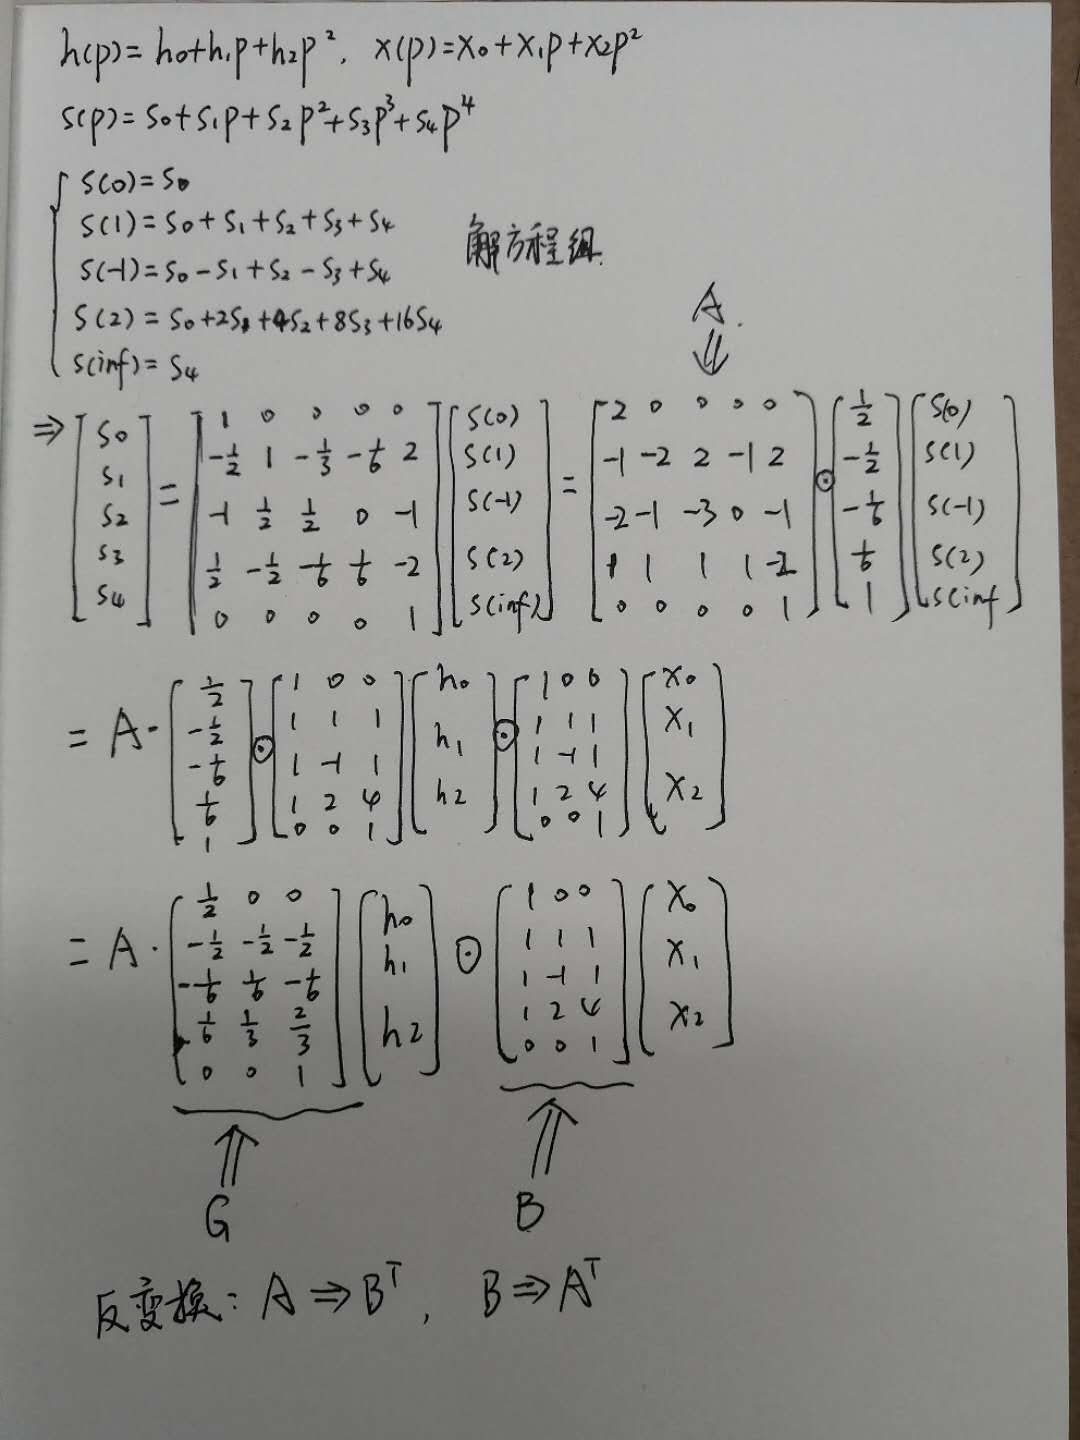 h(p)=h₀+h₁p+h₂p², x(p)=x₀+x₁p+x₂p²
s(p)=s₀+s₁p+s₂p²+s₃p³+s₄p⁴
s(0)=s₀
s(1)=s₀+s₁+s₂+s₃+s₄
解方程组.
s(-1)=s₀-s₁+s₂-s₃+s₄
s(2)=s₀+2s₁+4s₂+8s₃+16s₄
s(inf)=s₄
A.
⇓
⇒ [s₀ s₁ s₂ s₃ s₄] = [1 0 0 0 0; -1/2 1 -1/3 -1/6 2; -1 1/2 1/2 0 -1; 1/2 -1/2 -1/6 1/6 -2; 0 0 0 0 1] [s(0) s(1) s(-1) s(2) s(inf)] = [2 0 0 0 0; -1 -2 2 -1 2; -2 -1 -3 0 -1; 1 1 1 1 -2; 0 0 0 0 1] ⊙ [1/2 -1/2 -1/6 1/6 1] [s(0) s(1) s(-1) s(2) s(inf]
= A· [1/2 -1/2 -1/6 1/6 1] ⊙ [1 0 0; 1 1 1; 1 -1 1; 1 2 4; 0 0 1] [h₀ h₁ h₂] ⊙ [1 0 0; 1 1 1; 1 -1 1; 1 2 4; 0 0 1] [x₀ x₁ x₂]
= A· [1/2 0 0; -1/2 -1/2 -1/2; -1/6 1/6 -1/6; 1/6 1/3 2/3; 0 0 1] [h₀ h₁ h₂] ⊙ [1 0 0; 1 1 1; 1 -1 1; 1 2 4; 0 0 1] [x₀ x₁ x₂]
⇑ ⇑
G B
反变换: A⇒Bᵀ, B⇒Aᵀ